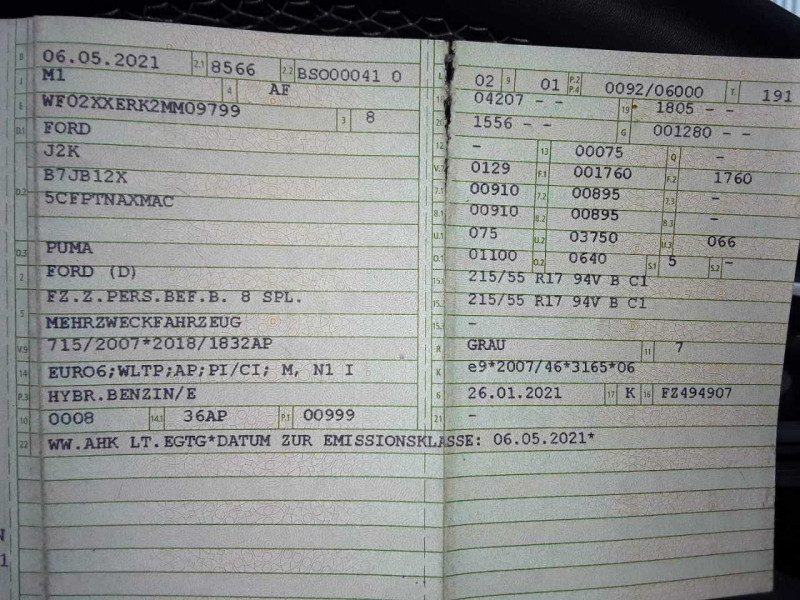 B 06.05.2021 2.1 8566 2.2 BSO00041 0
J M1 4 AF
E WF02XXERK2MM09799 3 8
D.1 FORD
J2K
D.2 B7JB12X
5CFPTNAXMAC
D.3 PUMA
2 FORD (D)
FZ.Z.PERS.BEF.B. 8 SPL.
5 MEHRZWECKFAHRZEUG
V.9 715/2007*2018/1832AP
14 EURO6;WLTP;AP;PI/CI; M, N1 I
P.3 HYBR.BENZIN/E
10 0008 14.1 36AP P.1 00999
22 WW.AHK LT.EGTG*DATUM ZUR EMISSIONSKLASSE: 06.05.2021*
L 02 9 01 P.2 P.4 0092/06000 T 191
18 04207 - - 19 1805 - -
20 1556 - - G 001280 - -
12 - 13 00075 Q -
V.7 0129 F.1 001760 F.2 1760
7.1 00910 7.2 00895 7.3 -
8.1 00910 8.2 00895 8.3 -
U.1 075 U.2 03750 U.3 066
O.1 01100 O.2 0640 S.1 5 S.2 -
15.1 215/55 R17 94V B C1
15.2 215/55 R17 94V B C1
15.3 -
R GRAU 11 7
K e9*2007/46*3165*06
6 26.01.2021 17 K 16 FZ494907
21 -